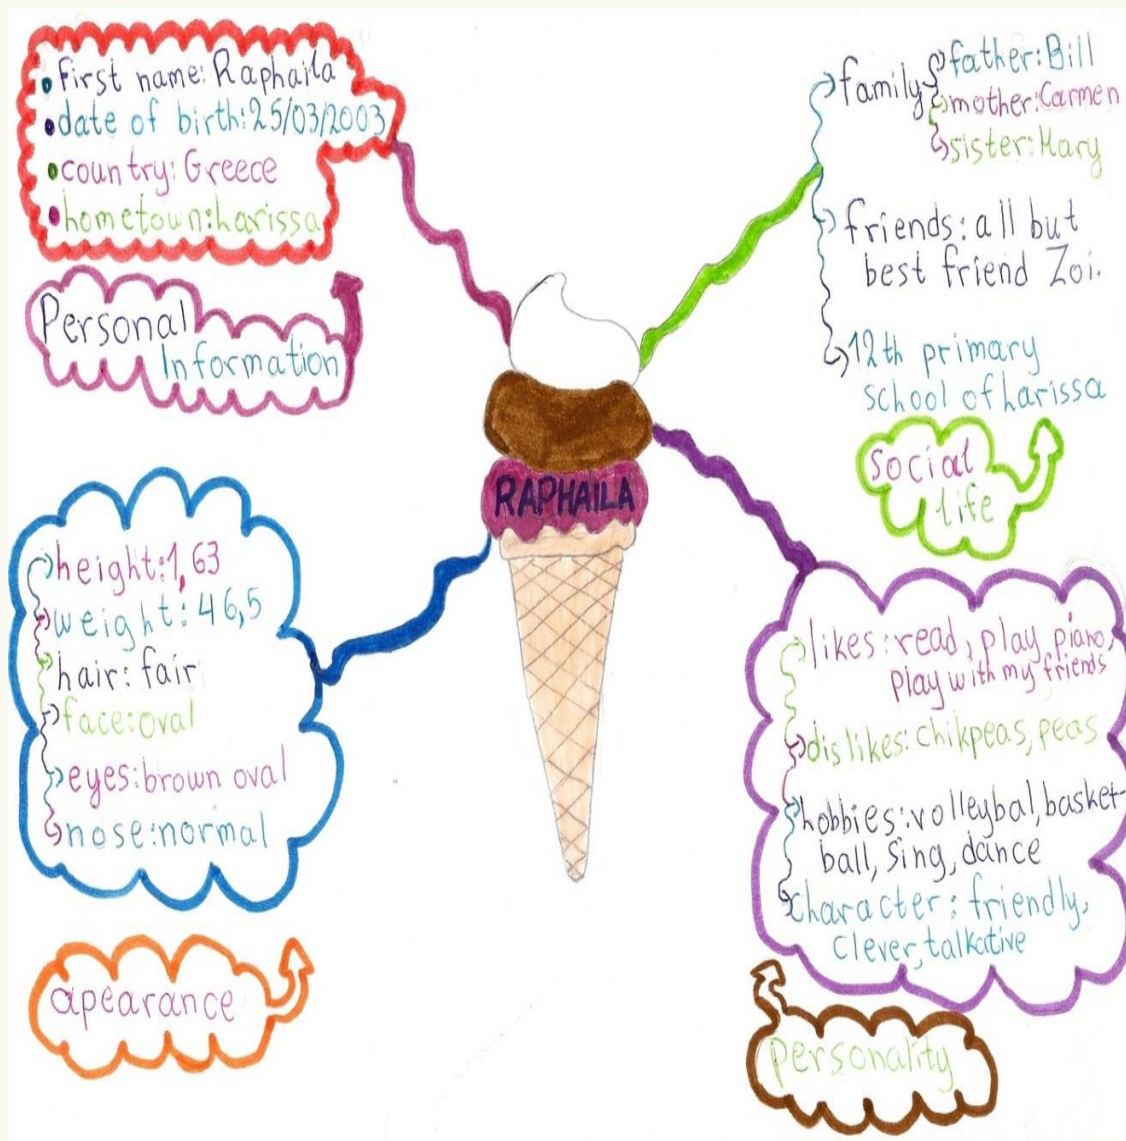 first name: Raphaila
date of birth: 25/03/2003
country: Greece
hometown: Larissa
Personal
Information
family
father: Bill
mother: Carmen
sister: Mary
friends: all but
best friend Zoi.
12th primary
school of Larissa
social
life
RAPHAILA
height: 1,63
weight: 46,5
hair: fair
face: oval
eyes: brown oval
nose: normal
apearance
likes: read, play, piano,
play with my friends
dislikes: chikpeas, peas
hobbies: volleybal, basket-
ball, sing, dance
character: friendly,
clever, talkative
personality